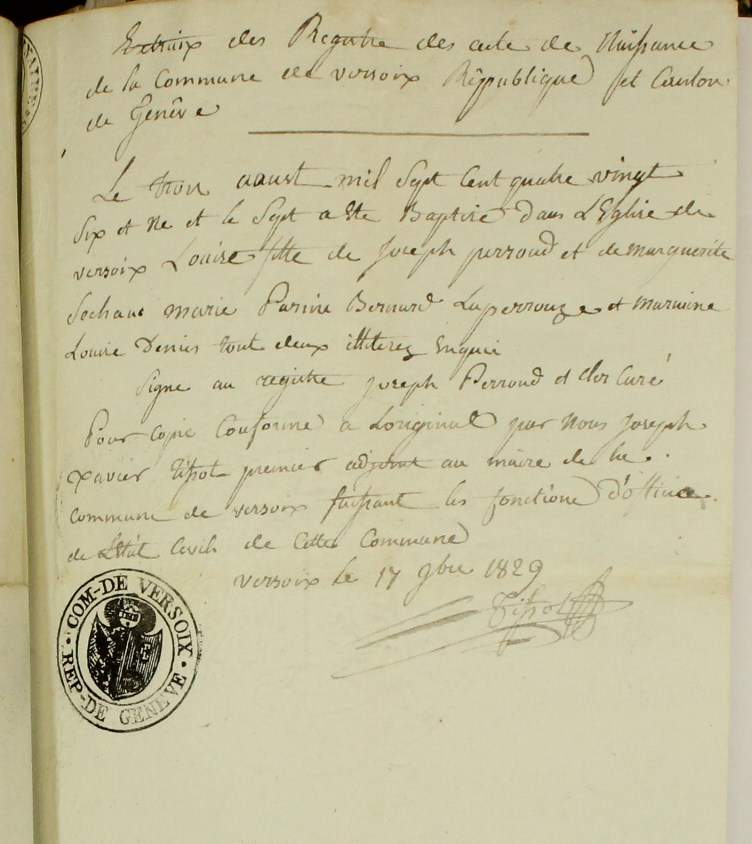 Extraix des Registre des acte de Naissance
de la Commune de versoix République et Canton
de Genêve
Le trois aaust mil Sept Cent quatre vingt
Six et Né et le Sept a Ete Baptise dans L'Eglise de
versoix Louise fille de Joseph perroud et de marguerite
Sochaus marie Parein Bernard Laperrouze et maraine
Louise Denis tout deux illiterez Enquis
Signe au registre Joseph Perroud et Curé
Pour Copie Conforme a Loriginal par Nous Joseph
Xavier tissot premier adjoint au maire de la
Commune de versoix faissant les fonctions d'officie
de L'Etat Civile de Cette Commune
versoix le 17 9bre 1829
Tissot
COM-DE VERSOIX
REP-DE GENEVE